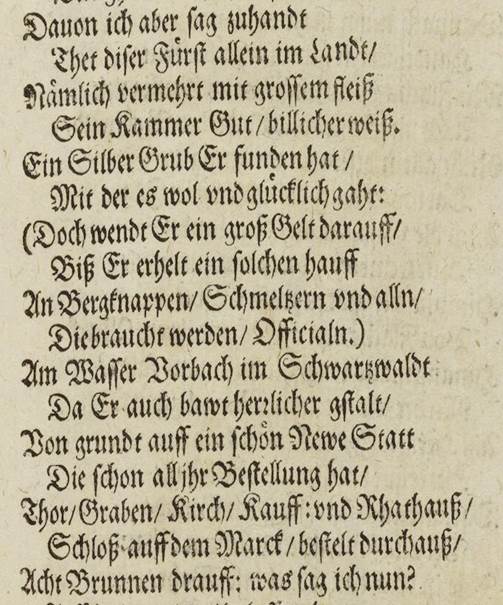 Dauon ich aber sag zuhandt
Thet diser Fürst allein im Landt/
Nämlich vermehrt mit grossem fleiß
Sein Kammer Gut/ billicher weiß.
Ein Silber Grub Er funden hat/
Mit der es wol vnd glücklich gaht:
(Doch wendt Er ein groß Gelt darauff/
Biß Er erhelt ein solchen hauff
An Bergknappen/ Schmeltzern vnd alln/
Die braucht werden/ Officialn.)
Am Wasser Vorbach im Schwartzwaldt
Da Er auch bawt herrlicher gstalt/
Von grundt auff ein schön Newe Statt
Die schon all jhr Bestellung hat/
Thor/ Graben/ Kirch/ Kauff: vnd Rhathauß/
Schloß auff dem Marck/ bestelt durchauß/
Acht Brunnen drauff: was sag ich nun?